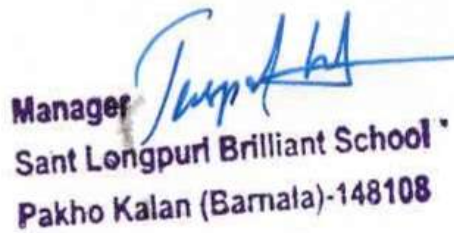 Manager
Sant Longpuri Brilliant School
Pakho Kalan (Barnala)-148108